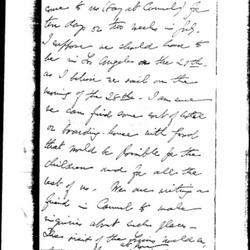 come to us (say at Carmel) for
ten days or two weeks in July.
I suppose we should have to
be in Los Angeles on the 25th.
as I believe we sail on the
morning of the 28th. I am sure
we can find some sort of hotel
or boarding-house with food
that would be possible for the
children and for all the
rest of us. We are writing a
friend in Carmel to make
inquiries about such places.
This visit of the would